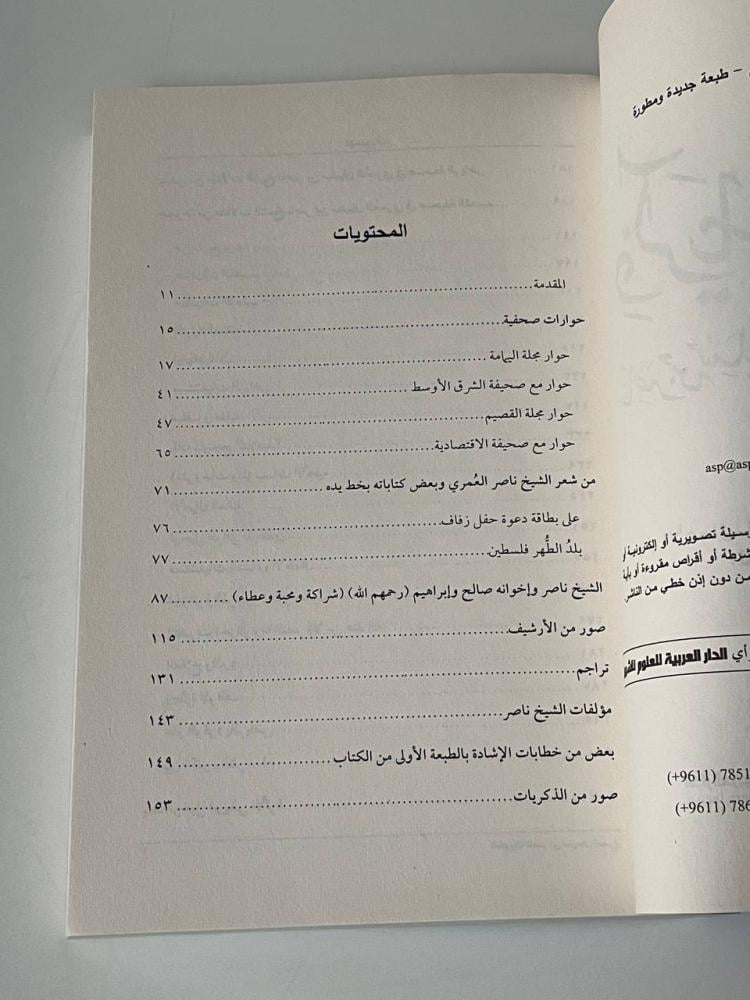 المحتويات
المقدمة ........ ١١
حوارات صحفية ........ ١٥
حوار مجلة اليمامة ........ ١٧
حوار مع صحيفة الشرق الأوسط ........ ٤١
حوار مجلة القصيم ........ ٤٧
حوار مع صحيفة الاقتصادية ........ ٦٥
من شعر الشيخ ناصر العُمري وبعض كتاباته بخط يده ........ ٧١
على بطاقة دعوة حفل زفاف ........ ٧٦
بلدُ الطُّهر فلسطين ........ ٧٧
الشيخ ناصر وإخوانه صالح وإبراهيم (رحمهم الله) (شراكة ومحبة وعطاء) ........ ٨٧
صور من الأرشيف ........ ١١٥
تراجم ........ ١٣١
مؤلفات الشيخ ناصر ........ ١٤٣
بعض من خطابات الإشادة بالطبعة الأولى من الكتاب ........ ١٤٩
صور من الذكريات ........ ١٥٣
– طبعة جديدة ومطورة
asp@asp
وسيلة تصويرية أو إلكترونية
أو أقراص مقروءة أو
من دون إذن خطي من الناشر.
رأي الدار العربية للعلوم
(+9611) 7851
(+9611) 786